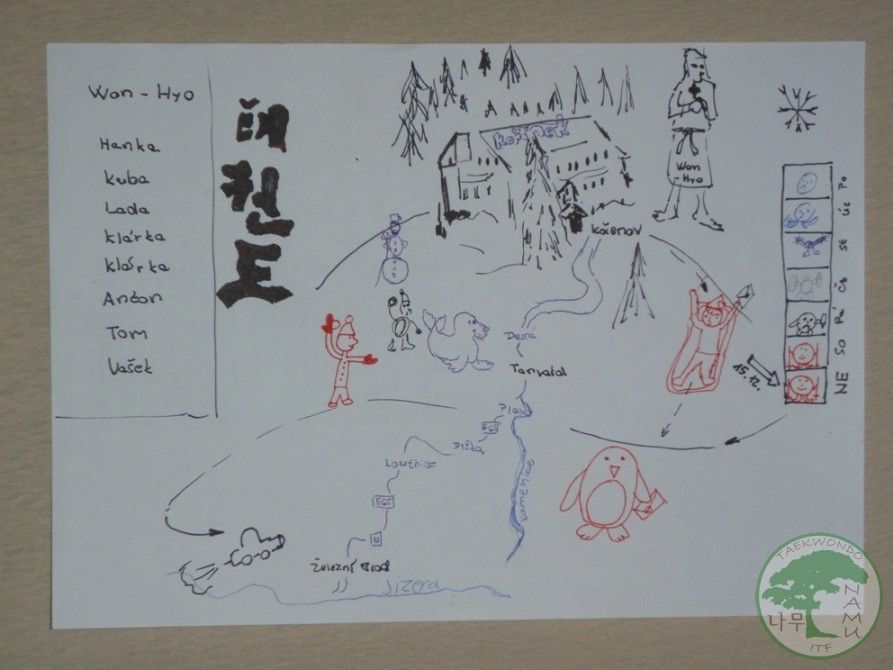 Won - Hyo
Hanka
Kuba
Lada
Klárka
Klárka
Anton
Tom
Vašek
태권도
kořínek
Won
- Hyo
Kořenov
Desná
Tanvald
Loužnice
E65
Kamenice
Železný Brod
Jizera
Po
Út
St
Čt
Pá
So
NE
15.12.
TAEKWONDO
NAMU
나무
ITF